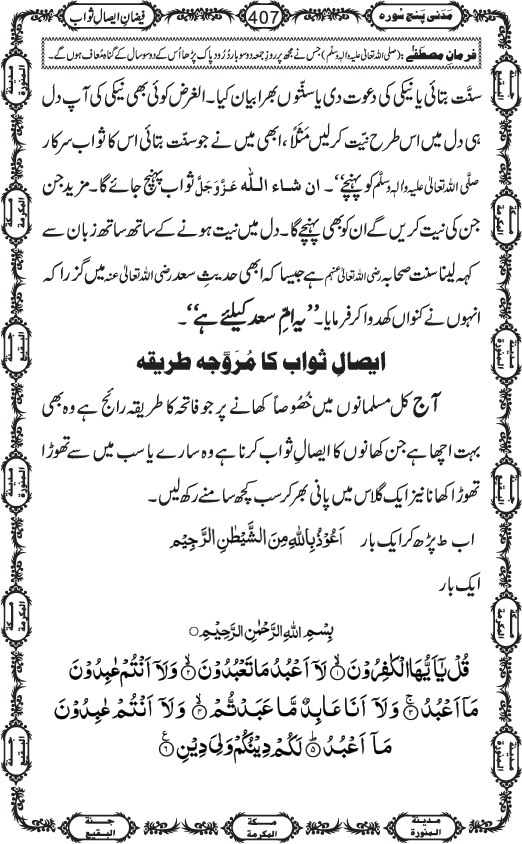 مَدَنی پنج سُورہ 407 فیضانِ ایصالِ ثواب
فرمانِ مصطفٰے: (صلی اللہ تعالیٰ علیہ والہٖ وسلّم) جس نے مجھ پر روزِ جمعہ دو سو بار دُرُود پاک پڑھا اُس کے دو سو سال کے گناہ مُعاف ہوں گے۔
سنَّت بتائی یا نیکی کی دعوت دی یا سنّتوں بھرا بیان کیا۔ الغرض کوئی بھی نیکی کی آپ دل
ہی دل میں اس طرح نیّت کرلیں مَثَلًا، ابھی میں نے جو سنّت بتائی اس کا ثواب سرکار
صلَّی اللہ تعالیٰ علیہ والہٖ وسلَّم کو پہنچے‘‘۔ ان شاء اللّٰہ عَزَّوَجَلَّ ثواب پہنچ جائے گا۔ مزید جن
جن کی نیت کریں گے ان کو بھی پہنچے گا۔ دل میں نیت ہونے کے ساتھ ساتھ زبان سے
کہہ لینا سنت صحابہ رضی اللہ تعالیٰ عنہم ہے جیسا کہ ابھی حدیثِ سعد رضی اللہ تعالیٰ عنہ میں گزرا کہ
انہوں نے کنواں کھدوا کر فرمایا۔ ’’یہ امِّ سعد کیلئے ہے‘‘۔
ایصالِ ثواب کا مُرَوَّجہ طریقہ
آج کل مسلمانوں میں خُصُوصاً کھانے پر جو فاتحہ کا طریقہ رائج ہے وہ بھی
بہت اچھا ہے جن کھانوں کا ایصالِ ثواب کرنا ہے وہ سارے یا سب میں سے تھوڑا
تھوڑا کھانا نیز ایک گلاس میں پانی بھر کر سب کچھ سامنے رکھ لیں۔
اب ط پڑھ کر ایک بار اَعُوْذُ بِاللّٰهِ مِنَ الشَّیْطٰنِ الرَّجِیْمِ
ایک بار
بِسْمِ اللّٰهِ الرَّحْمٰنِ الرَّحِیْمِ ○
قُلْ یٰۤاَیُّهَا الْكٰفِرُوْنَ ۙ﴿۱﴾ لَاۤ اَعْبُدُ مَا تَعْبُدُوْنَ ۙ﴿۲﴾ وَلَاۤ اَنْتُمْ عٰبِدُوْنَ
مَاۤ اَعْبُدُ ۚ﴿۳﴾ وَلَاۤ اَنَا عَابِدٌ مَّا عَبَدْتُّمْ ۙ﴿۴﴾ وَلَاۤ اَنْتُمْ عٰبِدُوْنَ
مَاۤ اَعْبُدُ ؕ﴿۵﴾ لَكُمْ دِیْنُكُمْ وَلِیَ دِیْنِ ﴿۶﴾ ع
مدینة المنورة
جنة البقیع
مکة المکرمة
مدینة المنورة
جنة البقیع
مکة المکرمة
مدینة المنورة
مدینة المنورة
مکة المکرمة
جنة البقیع
مدینة المنورة
مکة المکرمة
جنة البقیع
مدینة المنورة
مکة المکرمة
جنة البقیع